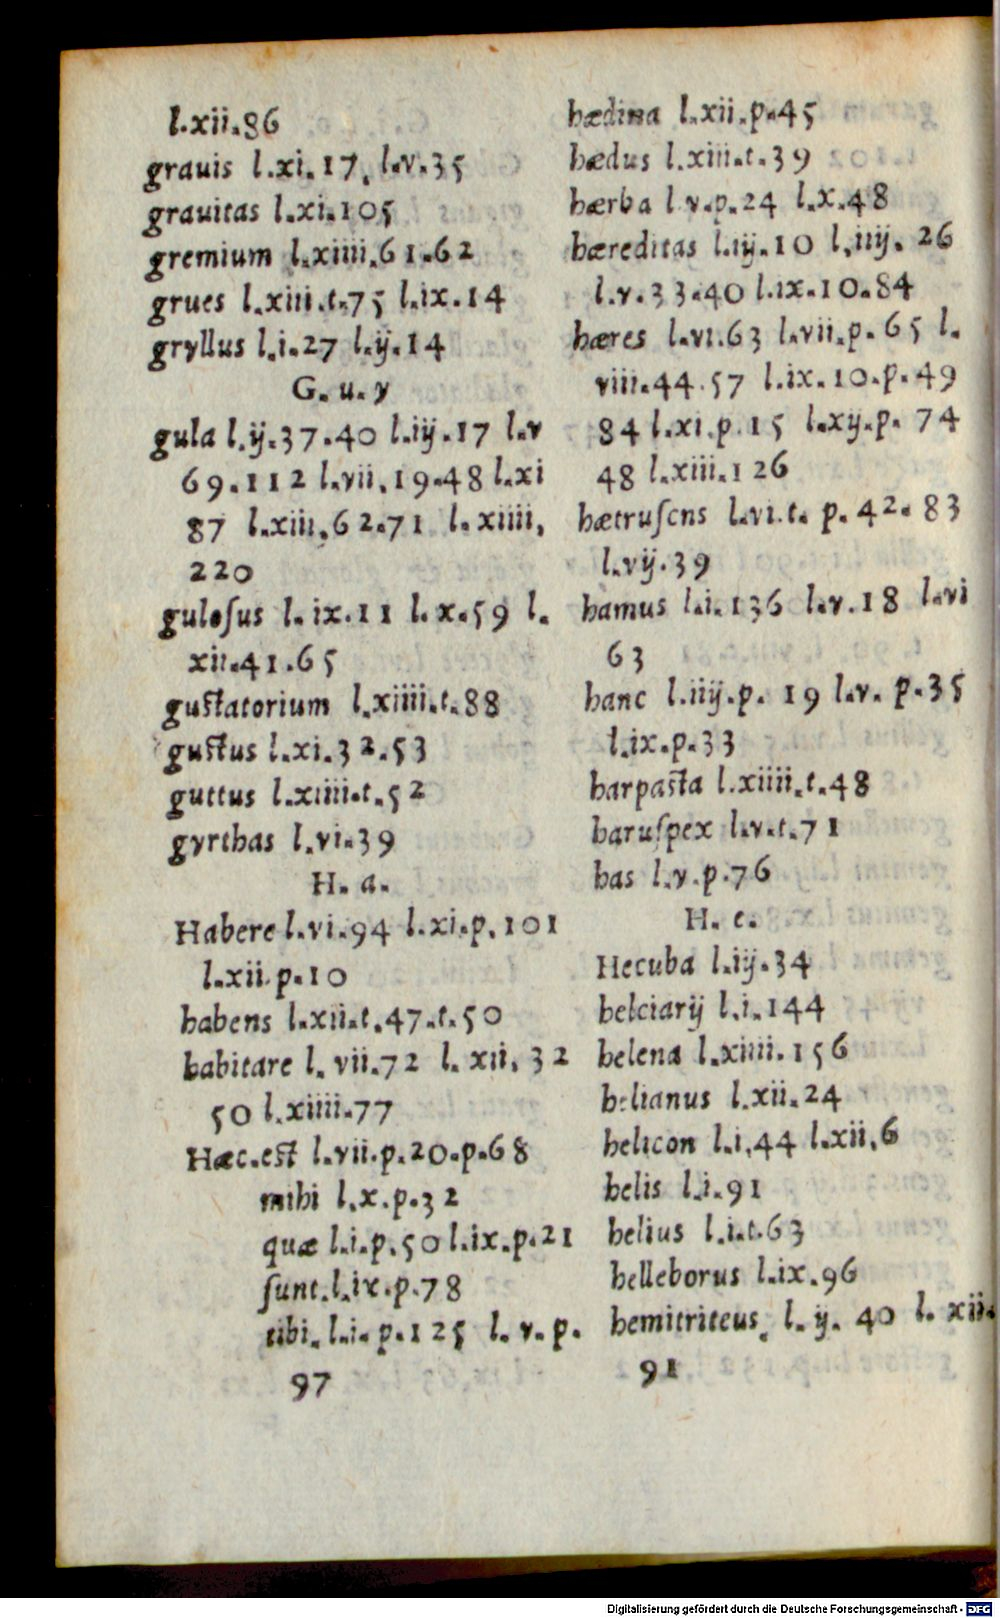 l.xii.86
grauis l.xi.17. l.v.35
grauitas l.xi.105
gremium l.xiiii.61.62
grues l.xiii.t.75 l.ix.14
gryllus l.i.27 l.ij.14
G. u. y
gula l.ij.37.40 l.iij.17 l.v
69.112 l.vii.19.48 l.xi
87 l.xiii.62.71 l.xiiii.
220
gulosus l. ix.11 l. x.59 l.
xii.41.65
gustatorium l.xiiii.t.88
gustus l.xi.32.53
guttus l.xiiii.t.52
gyrthas l.vi.39
H. a.
Habere l.vi.94 l.xi.p.101
l.xii.p.10
habens l.xii.t.47.t.50
habitare l. vii.72 l. xii. 32
50 l.xiiii.77
Hæc.est l.vii.p.20.p.68
mihi l.x.p.32
quæ l.i.p.50 l.ix.p.21
sunt.l.ix.p.78
tibi. l.i. p.125 l. v. p.
97
hædina l.xii.p.45
hædus l.xiii.t.39
hærba l v.p.24 l.x.48
hæreditas l.iij.10 l.iiij. 26
l.v.33.40 l.ix.10.84
hæres l.vi.63 l.vii.p.65 l.
viii.44.57 l.ix.10.p.49
84 l.xi.p.15 l.xij.p. 74
48 l.xiii.126
hætruscns l.vi.t. p. 42. 83
l.vij.39
hamus l.i.136 l.v.18 l.vi
63
hanc l.iiij.p. 19 l.v. p.35
l.ix.p.33
harpasta l.xiiii.t.48
haruspex l.v.t.71
has l.v.p.76
H. e.
Hecuba l.iij.34
helciarij l.i.144
helena l.xiiii.156
helianus l.xii.24
helicon l.i.44 l.xii.6
helis l.i.91
helius l.i.t.63
helleborus l.ix.96
hemitriteus. l. ij. 40 l. xii.
91
Digitalisierung gefördert durch die Deutsche Forschungsgemeinschaft - DFG